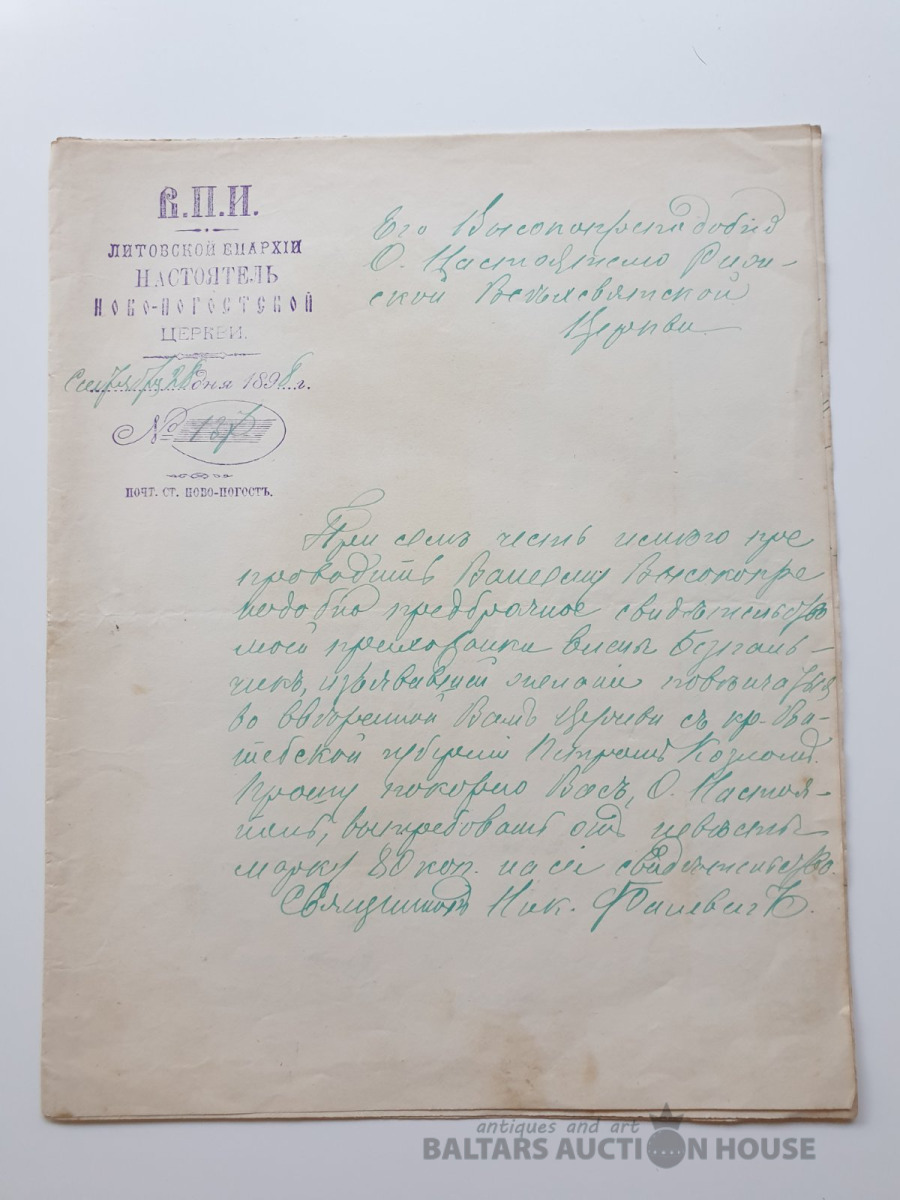 В.П.И.
ЛИТОВСКОЙ ЕПАРХІИ
НАСТОЯТЕЛЬ
НОВО-ПОГОСТСКОЙ
ЦЕРКВИ.
Сентября 28 дня 1898 г.
№ 137
ПОЧТ. СТ. НОВО-ПОГОСТЪ.
Его Высокопреподобію
О. Настоятелю Риж-
ской Всѣхсвятской
Церкви
При семъ честь имѣю пре
проводить Вашему Высокопре
подобію предбрачное свидѣтельство
моей прихожанки
изъявившей желаніе повѣнчаться
во ввѣренной Вамъ Церкви съ кр. Ви-
тебской губерніи Петромъ
Прошу покорно Васъ, О. Настоя-
тель, вытребовать отъ невѣсты
марку 80 коп. на сіе свидѣтельство.
Священникъ Ник.
antiques and art
BALTARS AUCTION HOUSE